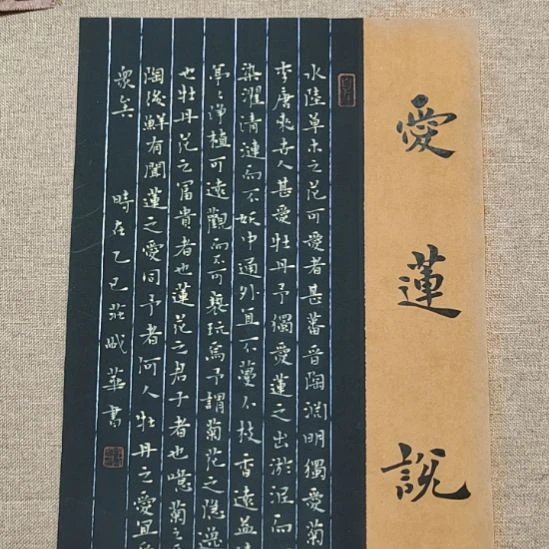 愛蓮說
水陸草木之花可愛者甚蕃晉陶淵明獨愛菊
李唐來世人甚愛牡丹予獨愛蓮之出淤泥而
染濯清漣而不妖中通外直不蔓不枝香遠益
亭〻淨植可遠觀而不可褻玩焉予謂菊花之隱逸
也牡丹花之富貴者也蓮花之君子者也噫菊之
陶後鮮有聞蓮之愛同予者何人牡丹之愛宜
眾矣 時在乙巳莊 華書